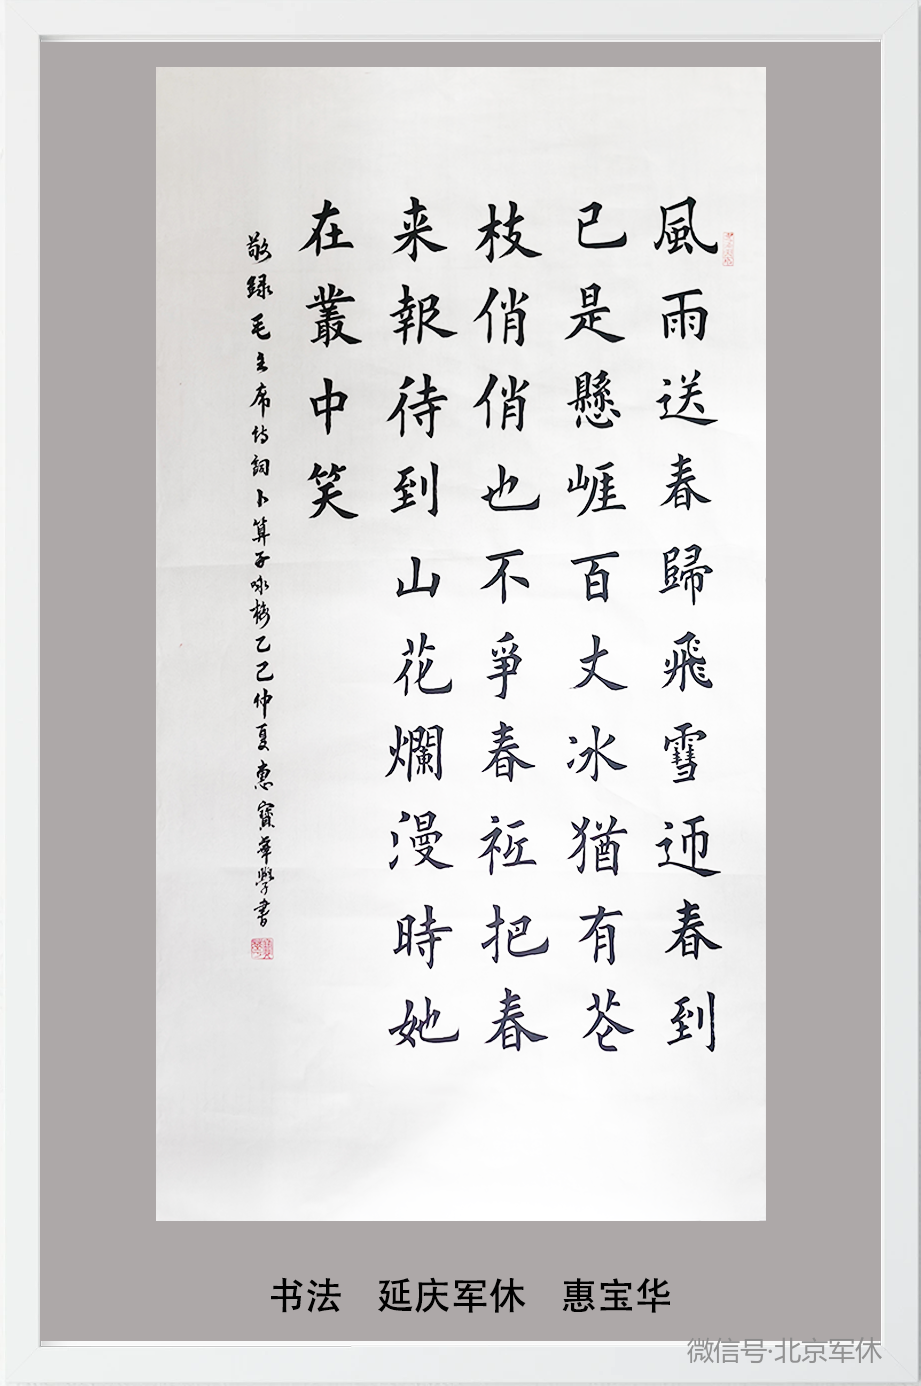 風雨送春歸飛雪迊春到
已是懸崖百丈冰猶有芲
枝俏俏也不爭春祗把春
来報待到山花爛漫時她
在叢中笑
敬録毛主席诗詞卜算子咏梅乙巳仲夏惠寶華學書
书法 延庆军休 惠宝华
微信号·北京军休